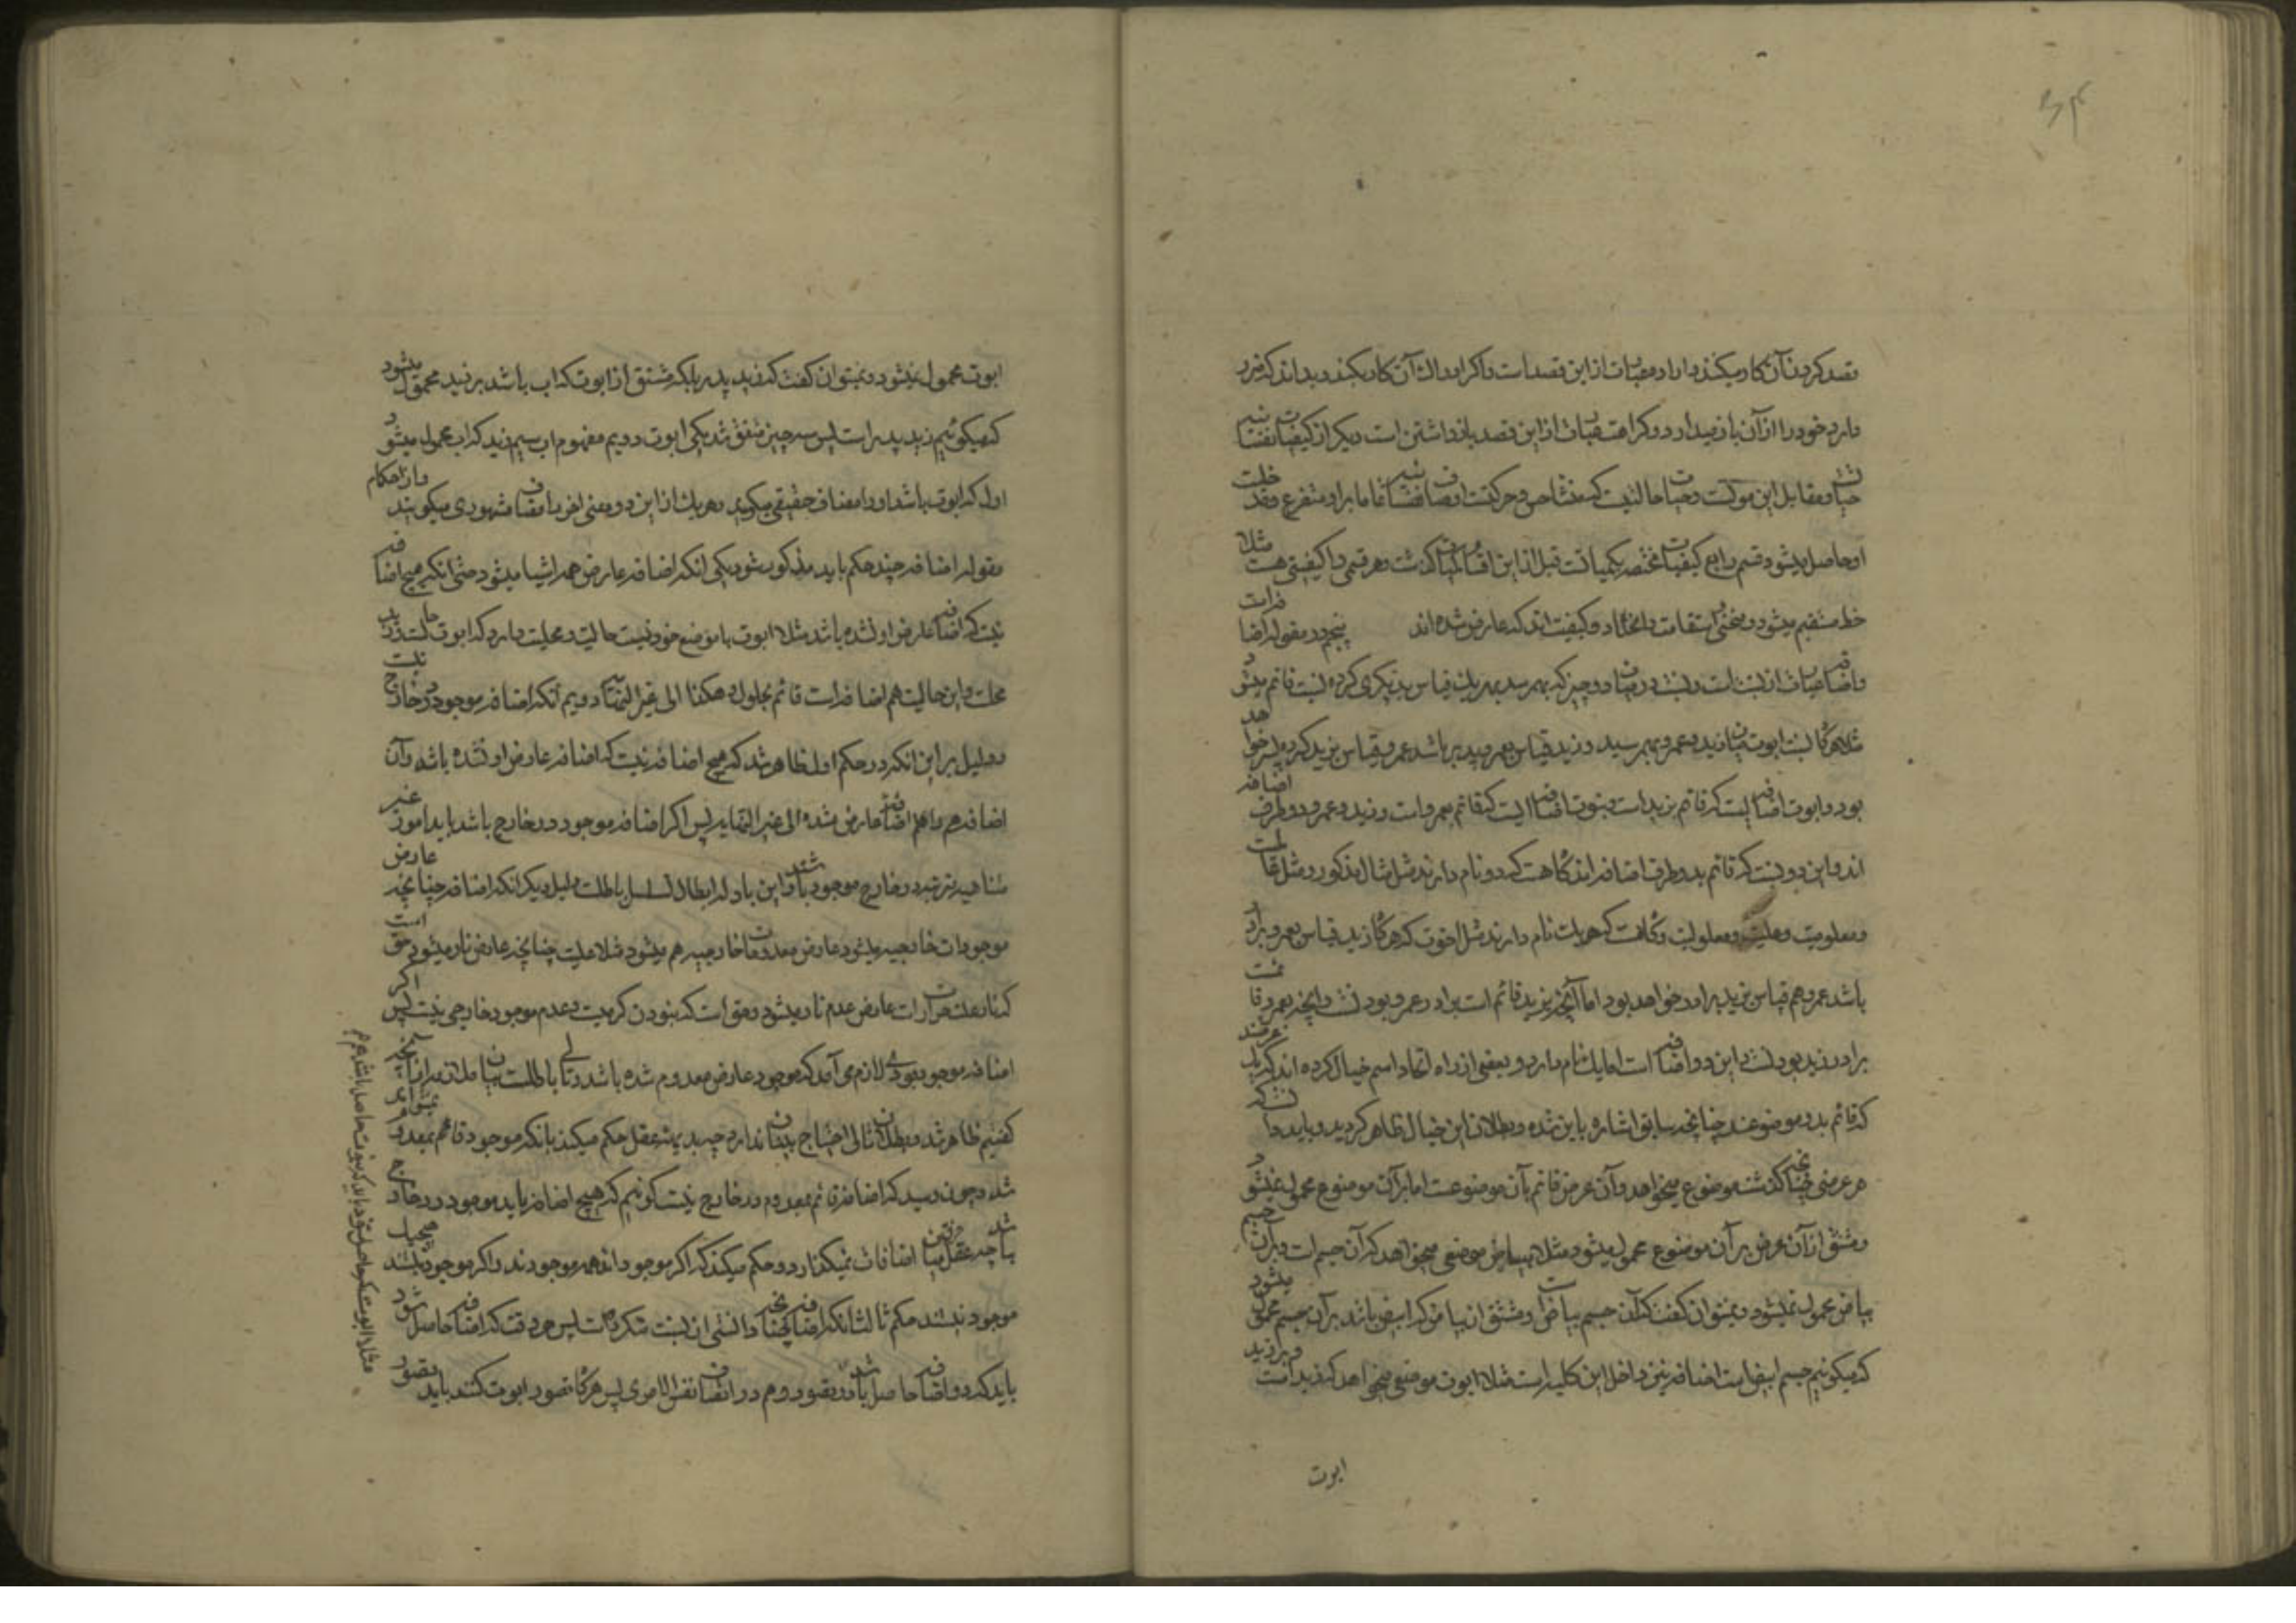 قصد کردن آن کار میکند و اراده عبارت از این قصد است و اگر ادراک آن کار بکند و بداند که ضرر
دارد خود را از آن باز میدارد و کراهت عبارت از این قصد باز داشتن است دیگر از کیفیات نفسانیه
حیاتست و مقابل این موتست و حیات حالتیست که منشأ حس و حرکتست
او حاصل میشود قسم رابع کیفیات مختصه بکمیاتست قبل از این اقسام کمیات گذشت و هر قسمی را کیفیتی هست مثلا
خط مستقیم میشود و منحنی استقامت و انحنا دو کیفیت‌اند که عارض شده‌اند پنجم در مقوله اضافتست
و اضافه عبارت از نسبت است و نسبت در میان دو چیز که بهم رسد بهر یک قیاس بدیگری کرده نسبت قائم میشود
مثلا هرگاه نسبت ابوت میان زید و عمرو بهم رسید و زید قیاس بعمرو پدر باشد عمرو قیاس بزید کرده پسر خواهد
بود و ابوت اضافه ایست که قائم بزید است و بنوت اضافه ایست که قائم بعمرو است و زید و عمرو دو طرف اضافه
اند و این دو نسبت که قائم بدو طرف اضافه‌اند گاه هست که دو نام دارند مثل مثال مذکور و مثل عالمیت
و معلومیت و علیت و معلولیت و گاهست که هر یک نام دارند مثل اخوت که هرگاه زید قیاس بعمرو برادر
باشد عمرو هم قیاس بزید برادر خواهد بود اما آنچه بزید قائم است برادر عمرو بودنست و آنچه بعمرو قائمست
برادر زید بودنست و این دو اضافه است اما یک نام دارد و بعضی از راه اتحاد اسم خیال کرده‌اند که یک عرضند
که قائم بدو موضوعند چنانچه سابق اشاره باین شده و بطلان این خیال ظاهر گردید و باید دانست که
هر عرضی چنانچه گذشت موضوع میخواهد و آن عرض قائم بآن موضوعست اما بر آن موضوع محمول نمیشود
و مشتق از آن عرض بر آن موضوع محمول میشود مثلا بیاض موضعی میخواهد که آن جسم است و بر آن جسم
بیاض محمول نمیشود و نمیتوان گفت که آن جسم بیاض است و مشتق از بیاض که ابیض باشد بر آن جسم محمول میشود
که میگوئیم جسم ابیض است اضافه نیز داخل این کلیه است مثلا ابوت موضعی میخواهد که زید است و بر زید
ابوت
ابوت محمول نمیشود و نمیتوان گفت که زید پدر بلکه مشتق از ابوت که اب باشد بر زید محمول میشود
که میگوئیم زید پدر است پس سه چیز متحقق شد یکی ابوت دویم مفهوم اب سیم زید که اب محمول میشود
اول که ابوت باشد او را مضاف حقیقی میگویند و هر یک از این دو معنی اخر را مضاف مشهوری میگویند و از احکام
مقوله اضافه چند حکم باید مذکور شود یکی آنکه اضافه عارض همه اشیا میشود حتی آنکه هیچ اضافه
نیست که اضافه عارض او نشده باشد مثلا ابوت با موضع خود نسبت حالیت و محلیت دارد که ابوت حالست و زید
محلست و این حالیت هم اضافه است قائم بحلول و هکذا الی غیر النهایة دویم آنکه اضافه موجود در خارج نیست
و دلیل بر این آنکه در حکم اول ظاهر شد که هیچ اضافه نیست که اضافه عارض او نشده باشد و آن
اضافه هم را هم اضافه عارض شده الی غیر النهایه پس اگر اضافه موجود در خارج باشد باید امور غیر
متناهیه مترتبه در خارج موجود باشند و این بادله ابطال تسلسل باطلست دلیل دیگر آنکه اضافه چنانچه عارض
موجودات خارجیه میشود عارض معدومات خارجیه هم میشود مثلا علیت چنانچه عارض نار میشود حق است
که نار علت حرارتست عارض عدم نار میشود و حق است که نبودن گرمیست و عدم موجود خارجی نیست پس اگر
اضافه موجود بودی لازم می‌آمد که موجود عارض معدوم شده باشد و تالی باطلست بیان ملازمه از آنچه
گفتیم ظاهر شد و بطلان تالی احتیاج ببیان ندارد چه بدیهه عقل حکم میکند بآنکه موجود قائم بمعدوم نمیتواند
شد و چون دیدیم که اضافه قائم بمعدوم در خارج نیست گوئیم که هیچ اضافه نباید موجود در خارج
باشد چه عقل میان اضافات فرقی نمیگذارد و حکم میکند که اگر موجوداند همه موجودند و اگر موجود نیستند هیچیک
موجود نیستند حکم ثالث آنکه اضافه چنانچه دانستی از نسبت متکرره است پس هر وقت که اضافه حاصل شود
باید که دو اضافه حاصل باشد در تصور و هم در اتصاف نفس الامری پس هرگاه تصور ابوت کنند باید تصور